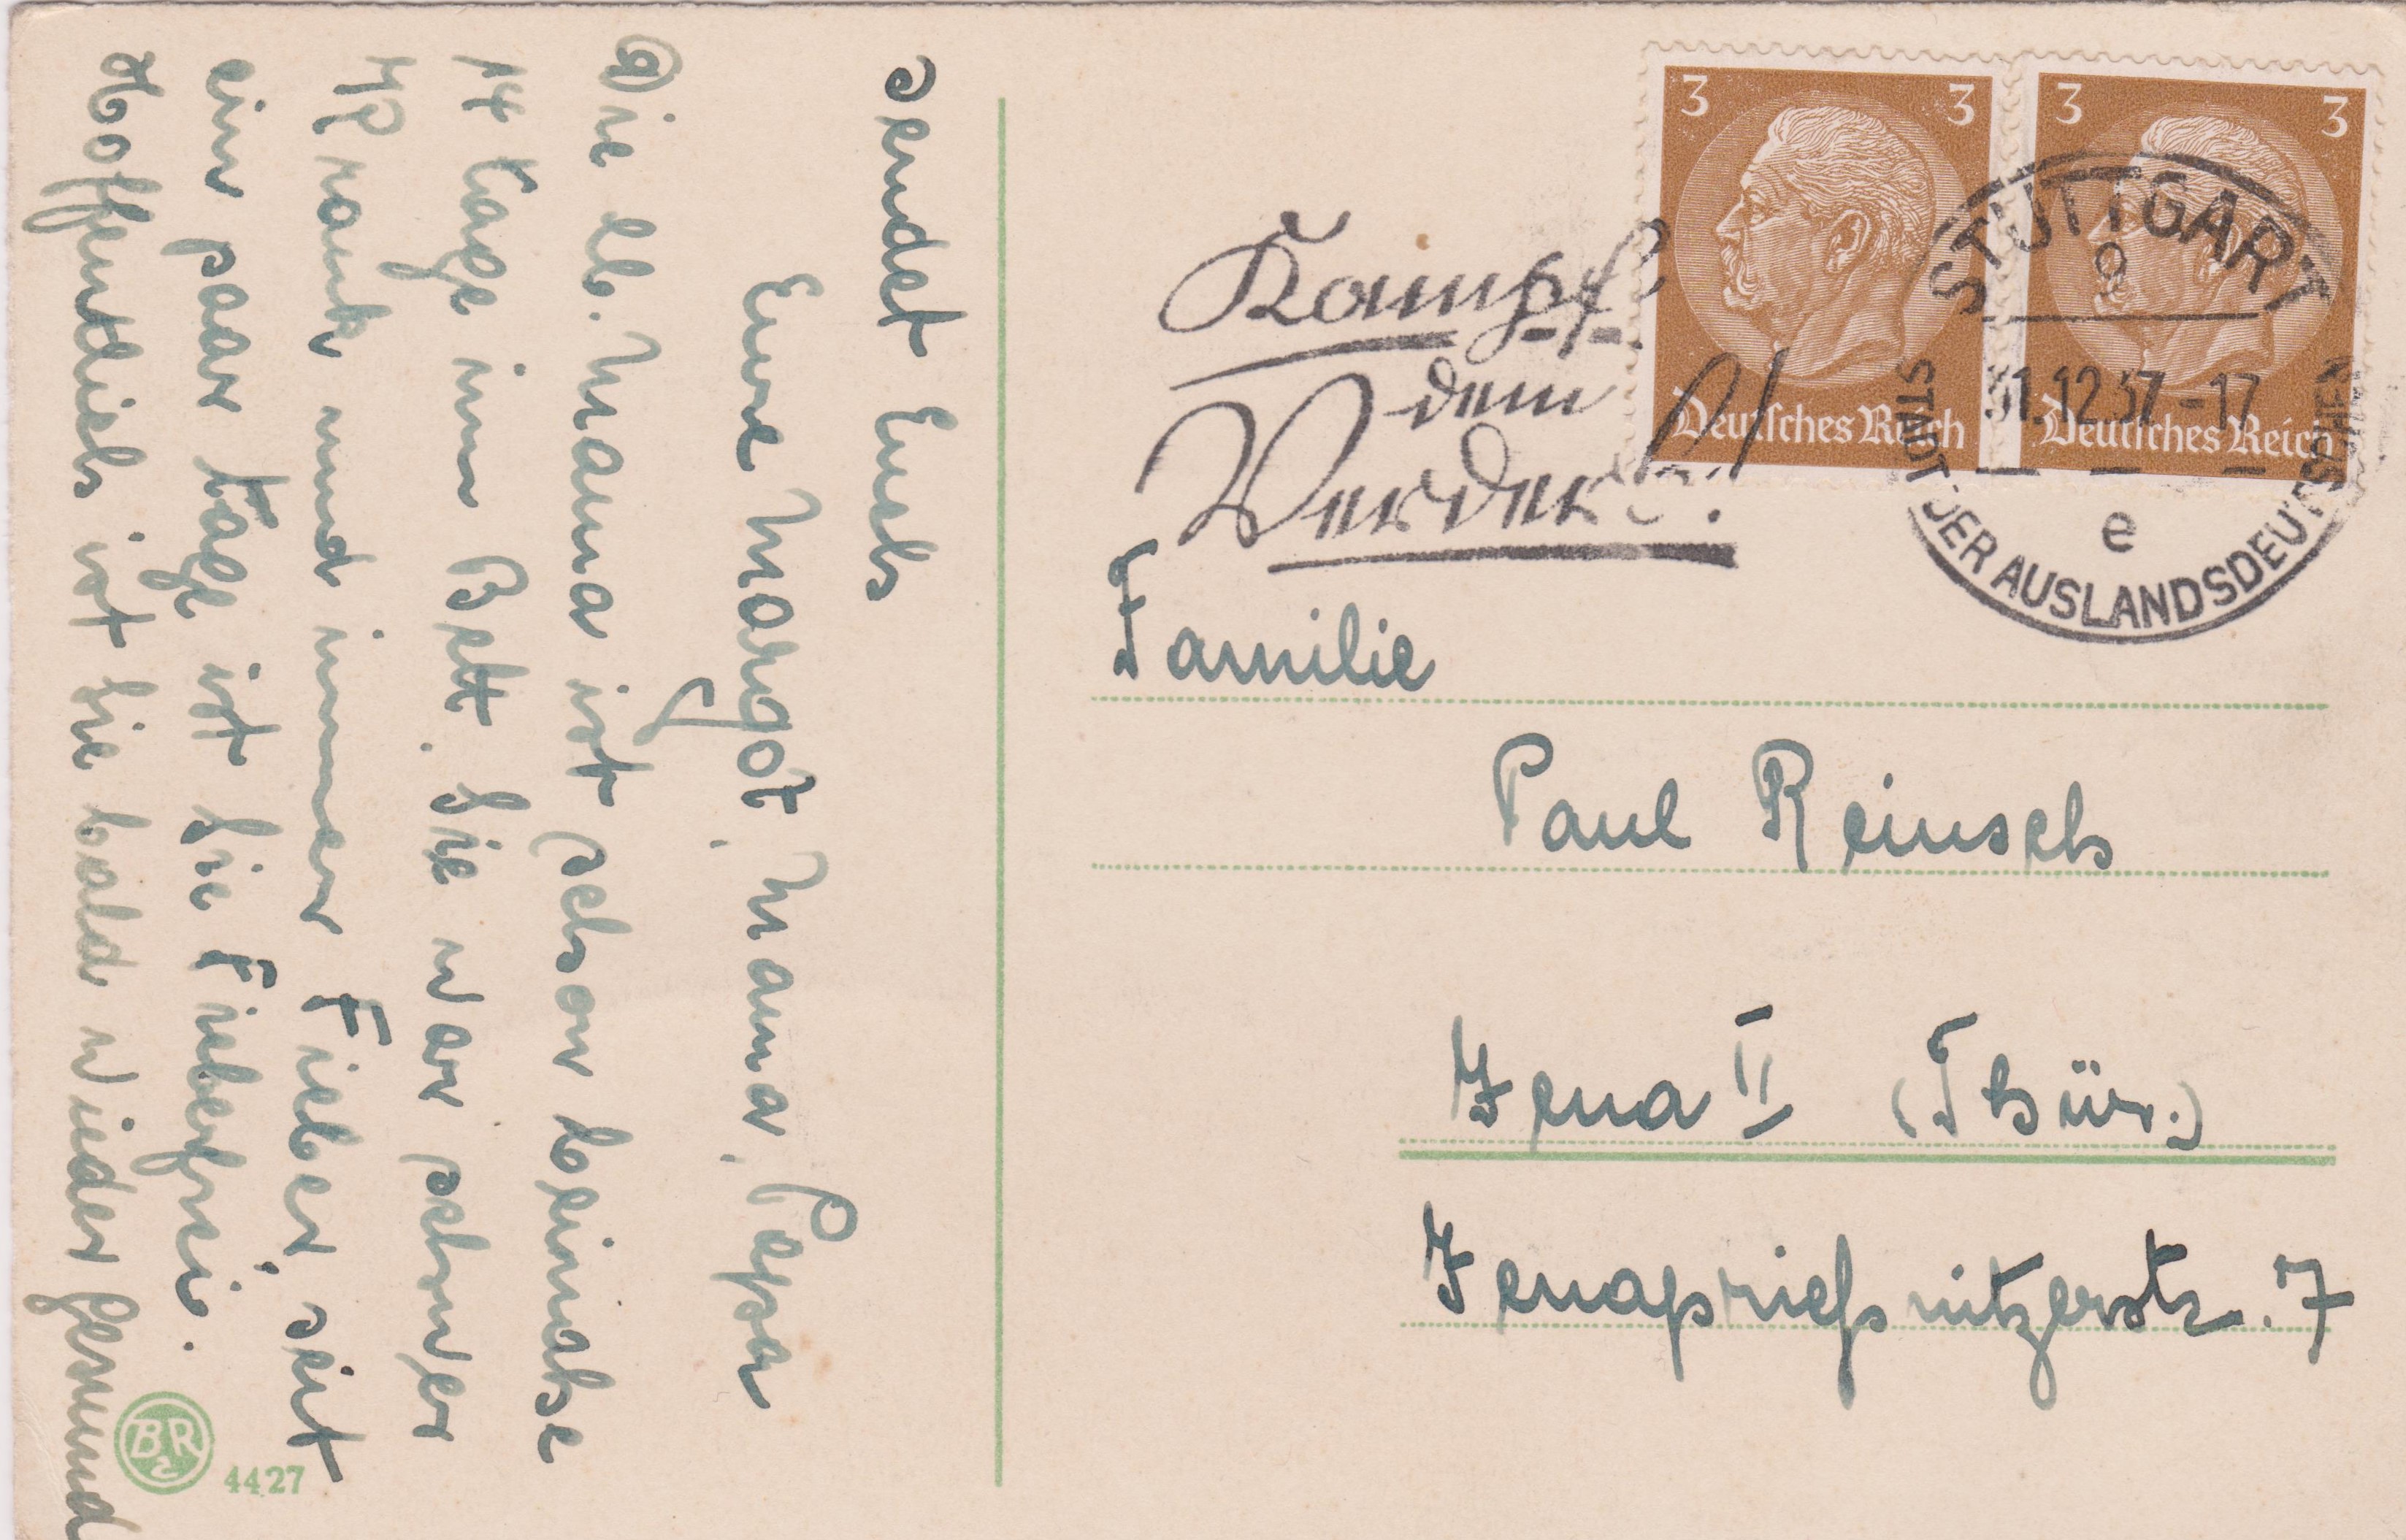 sendet Euch
Eure Margot, Mama, Papa
Die lb. Mama ist schon beinahe
14 Tage im Bett. Sie war schwer
krank und immer Fieber, seit
ein paar Tage ist sie Fieberfrei.
Hoffentlich ist sie bald wieder gesund
BR
4427
3 3
Deutsches Reich
3 3
Deutsches Reich
STUTTGART
9
31.12.37-17
e
STADT DER AUSLANDSDEUTSCHEN
Kampf
dem
Verderb!
Familie
Paul Reinsch
Jena II (Thür.)
Jenaprießnitzerstr. 7